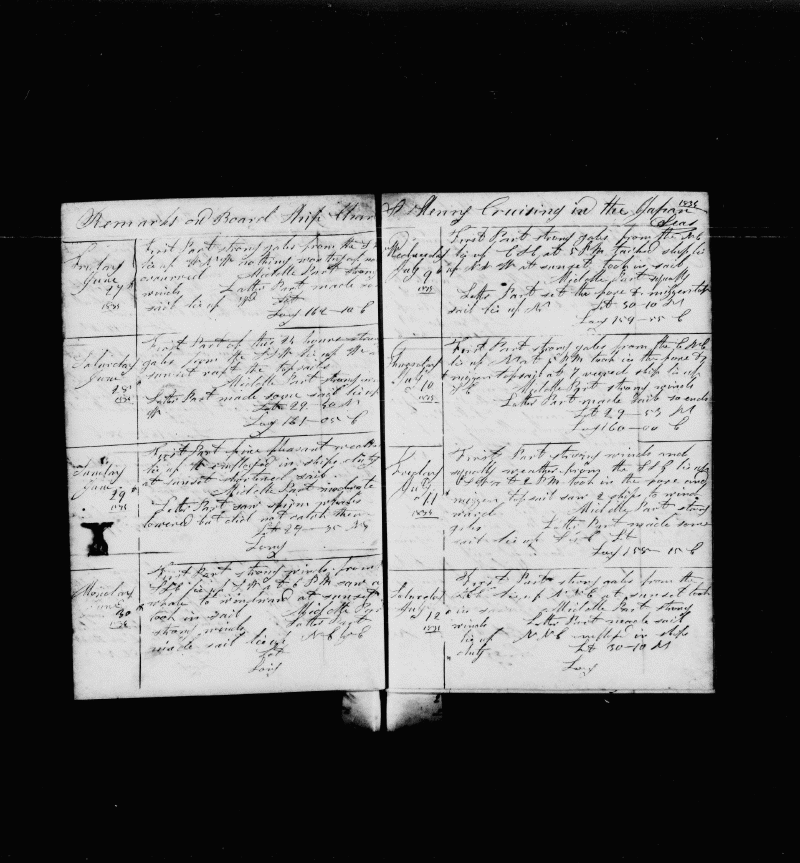 Remarks on Board Ship Char
Friday
June
27
1835
First Part strong gales from the S
lie up W S W nothing worthy of
occurred Middle Part strong
winds Latter Part made
sail lie up Lat
Long 162-10 E
Saturday
June
28
1835
First Part of this 24 hours strong
gales from the S S W lie up W
sunset the topsails
Middle Part strong
Latter Part made some sail lie up
W Lat 29-30 N
Long 161-05 E
Sunday
June
29
1835
First Part fine pleasant weather
lie up W employed in ships duty
at sunset shortened sail
Middle Part moderate
Latter Part saw sperm whales
lowered but did not catch them
Lat 29-35 N
Long
Monday
June
30
1835
First Part strong winds from
at 6 P M saw a
whale to windward at sunset
took in sail Middle Part
strong winds Latter Part
made sail lie up N E
Lat
Long
Henry Cruising in the Japan
Seas
1835
Wednesday
July
9
1835
First Part strong gales from the N E
lie up E S E at 5 P M tacked ship lie
up N N W at sunset took in sail
Middle Part squally
Latter Part set the fore & mizzen top
sail lie up N Lat 30-10 N
Long 159-55 E
Thursday
July
10
1835
First Part strong gales from the E N E
lie up N at 5 P M took in the fore &
mizzen topsail at 7 weared ship lie up
Middle Part strong winds
Latter Part made sail
Lat 29-53 N
Long 160-00 E
Friday
July
11
1835
First Part strong winds and
squally weather from the S S E lie up
at 2 P M took in the fore and
mizzen topsail saw 2 ships to wind
ward Middle Part strong
gales Latter Part made some
sail lie up Lat
Long 158-15 E
Saturday
July
12
1835
First Part strong gales from the
lie up N N E at sunset took
in sail Middle Part strong
winds Latter Part made sail
lie up N N E employed in ships
duty Lat 30-10 N
Long